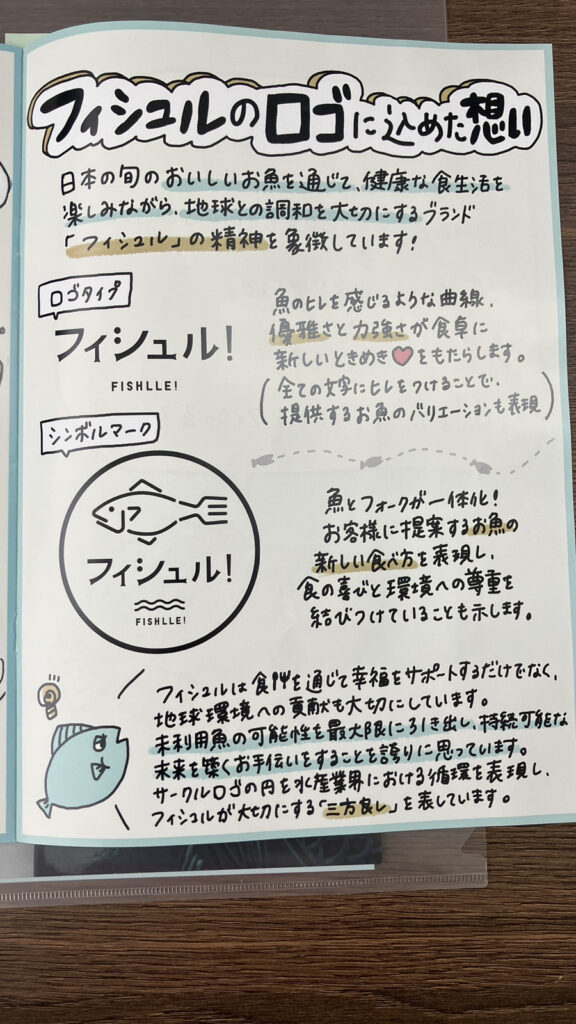 フィシュルのロゴに込めた想い
日本の旬のおいしいお魚を通じて、健康な食生活を
楽しみながら、地球との調和を大切にするブランド
「フィシュル」の精神を象徴しています!
ロゴタイプ
フィシュル!
FISHLLE!
魚のヒレを感じるような曲線、
優雅さと力強さが食卓に
新しいときめき♥をもたらします。
(全ての文字にヒレをつけることで、
提供するお魚のバリエーションも表現)
シンボルマーク
フィシュル!
FISHLLE!
魚とフォークが一体化!
お客様に提案するお魚の
新しい食べ方を表現し、
食の喜びと環境への尊重を
結びつけていることも示します。
フィシュルは食を通じて幸福をサポートするだけでなく、
地球環境への貢献も大切にしています。
未利用魚の可能性を最大限に引き出し、持続可能な
未来を築くお手伝いをすることを誇りに思っています。
サークルロゴの円を水産業界における循環を表現し、
フィシュルが大切にする「三方良し」を表しています。